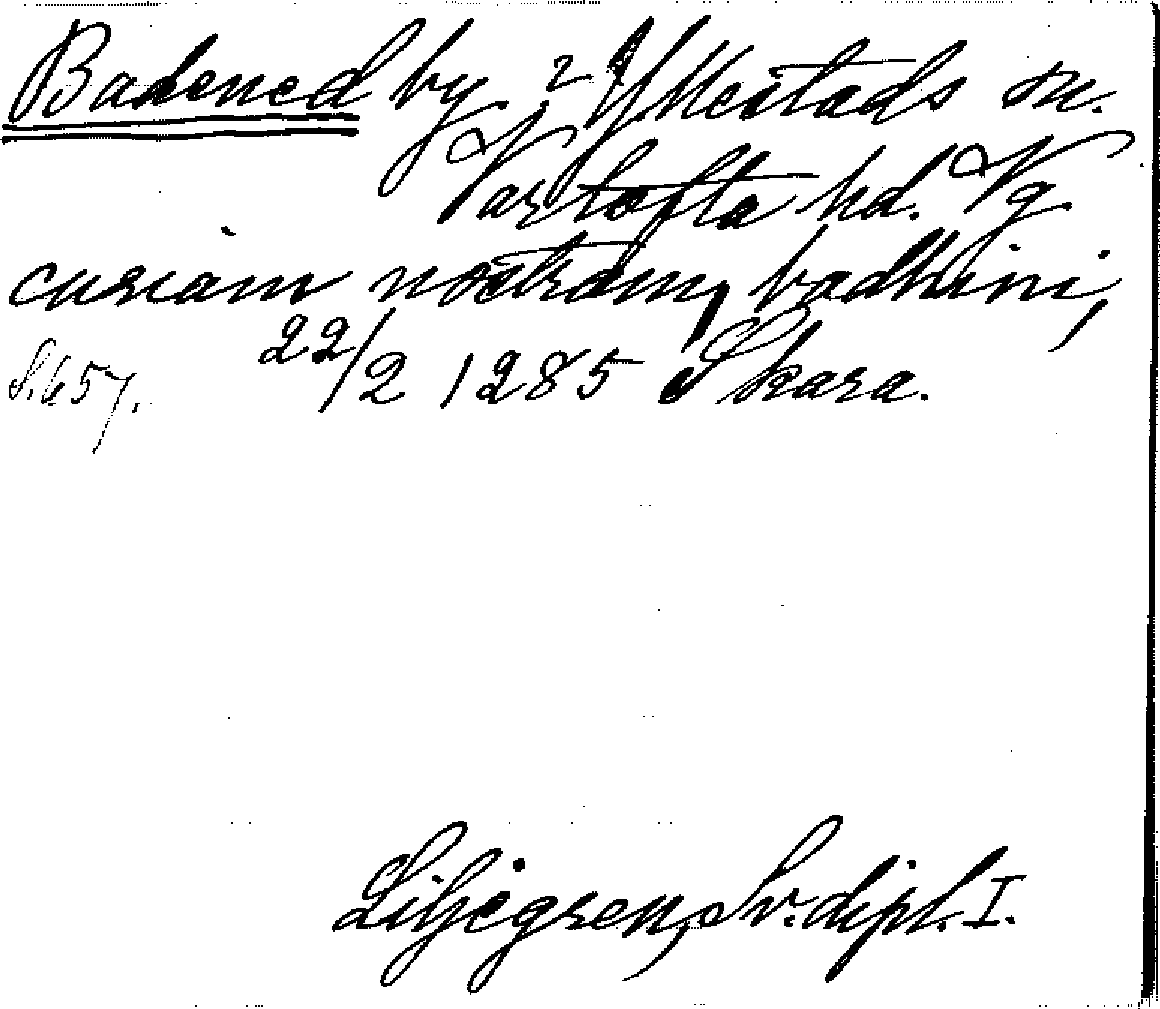 Badened by, Yllestads sn.
Vartofta hd. Vg
curiam nostram, badhini,
S. 657. 22/2 1285 Skara.
Liljegren, Sv. dipl. I.